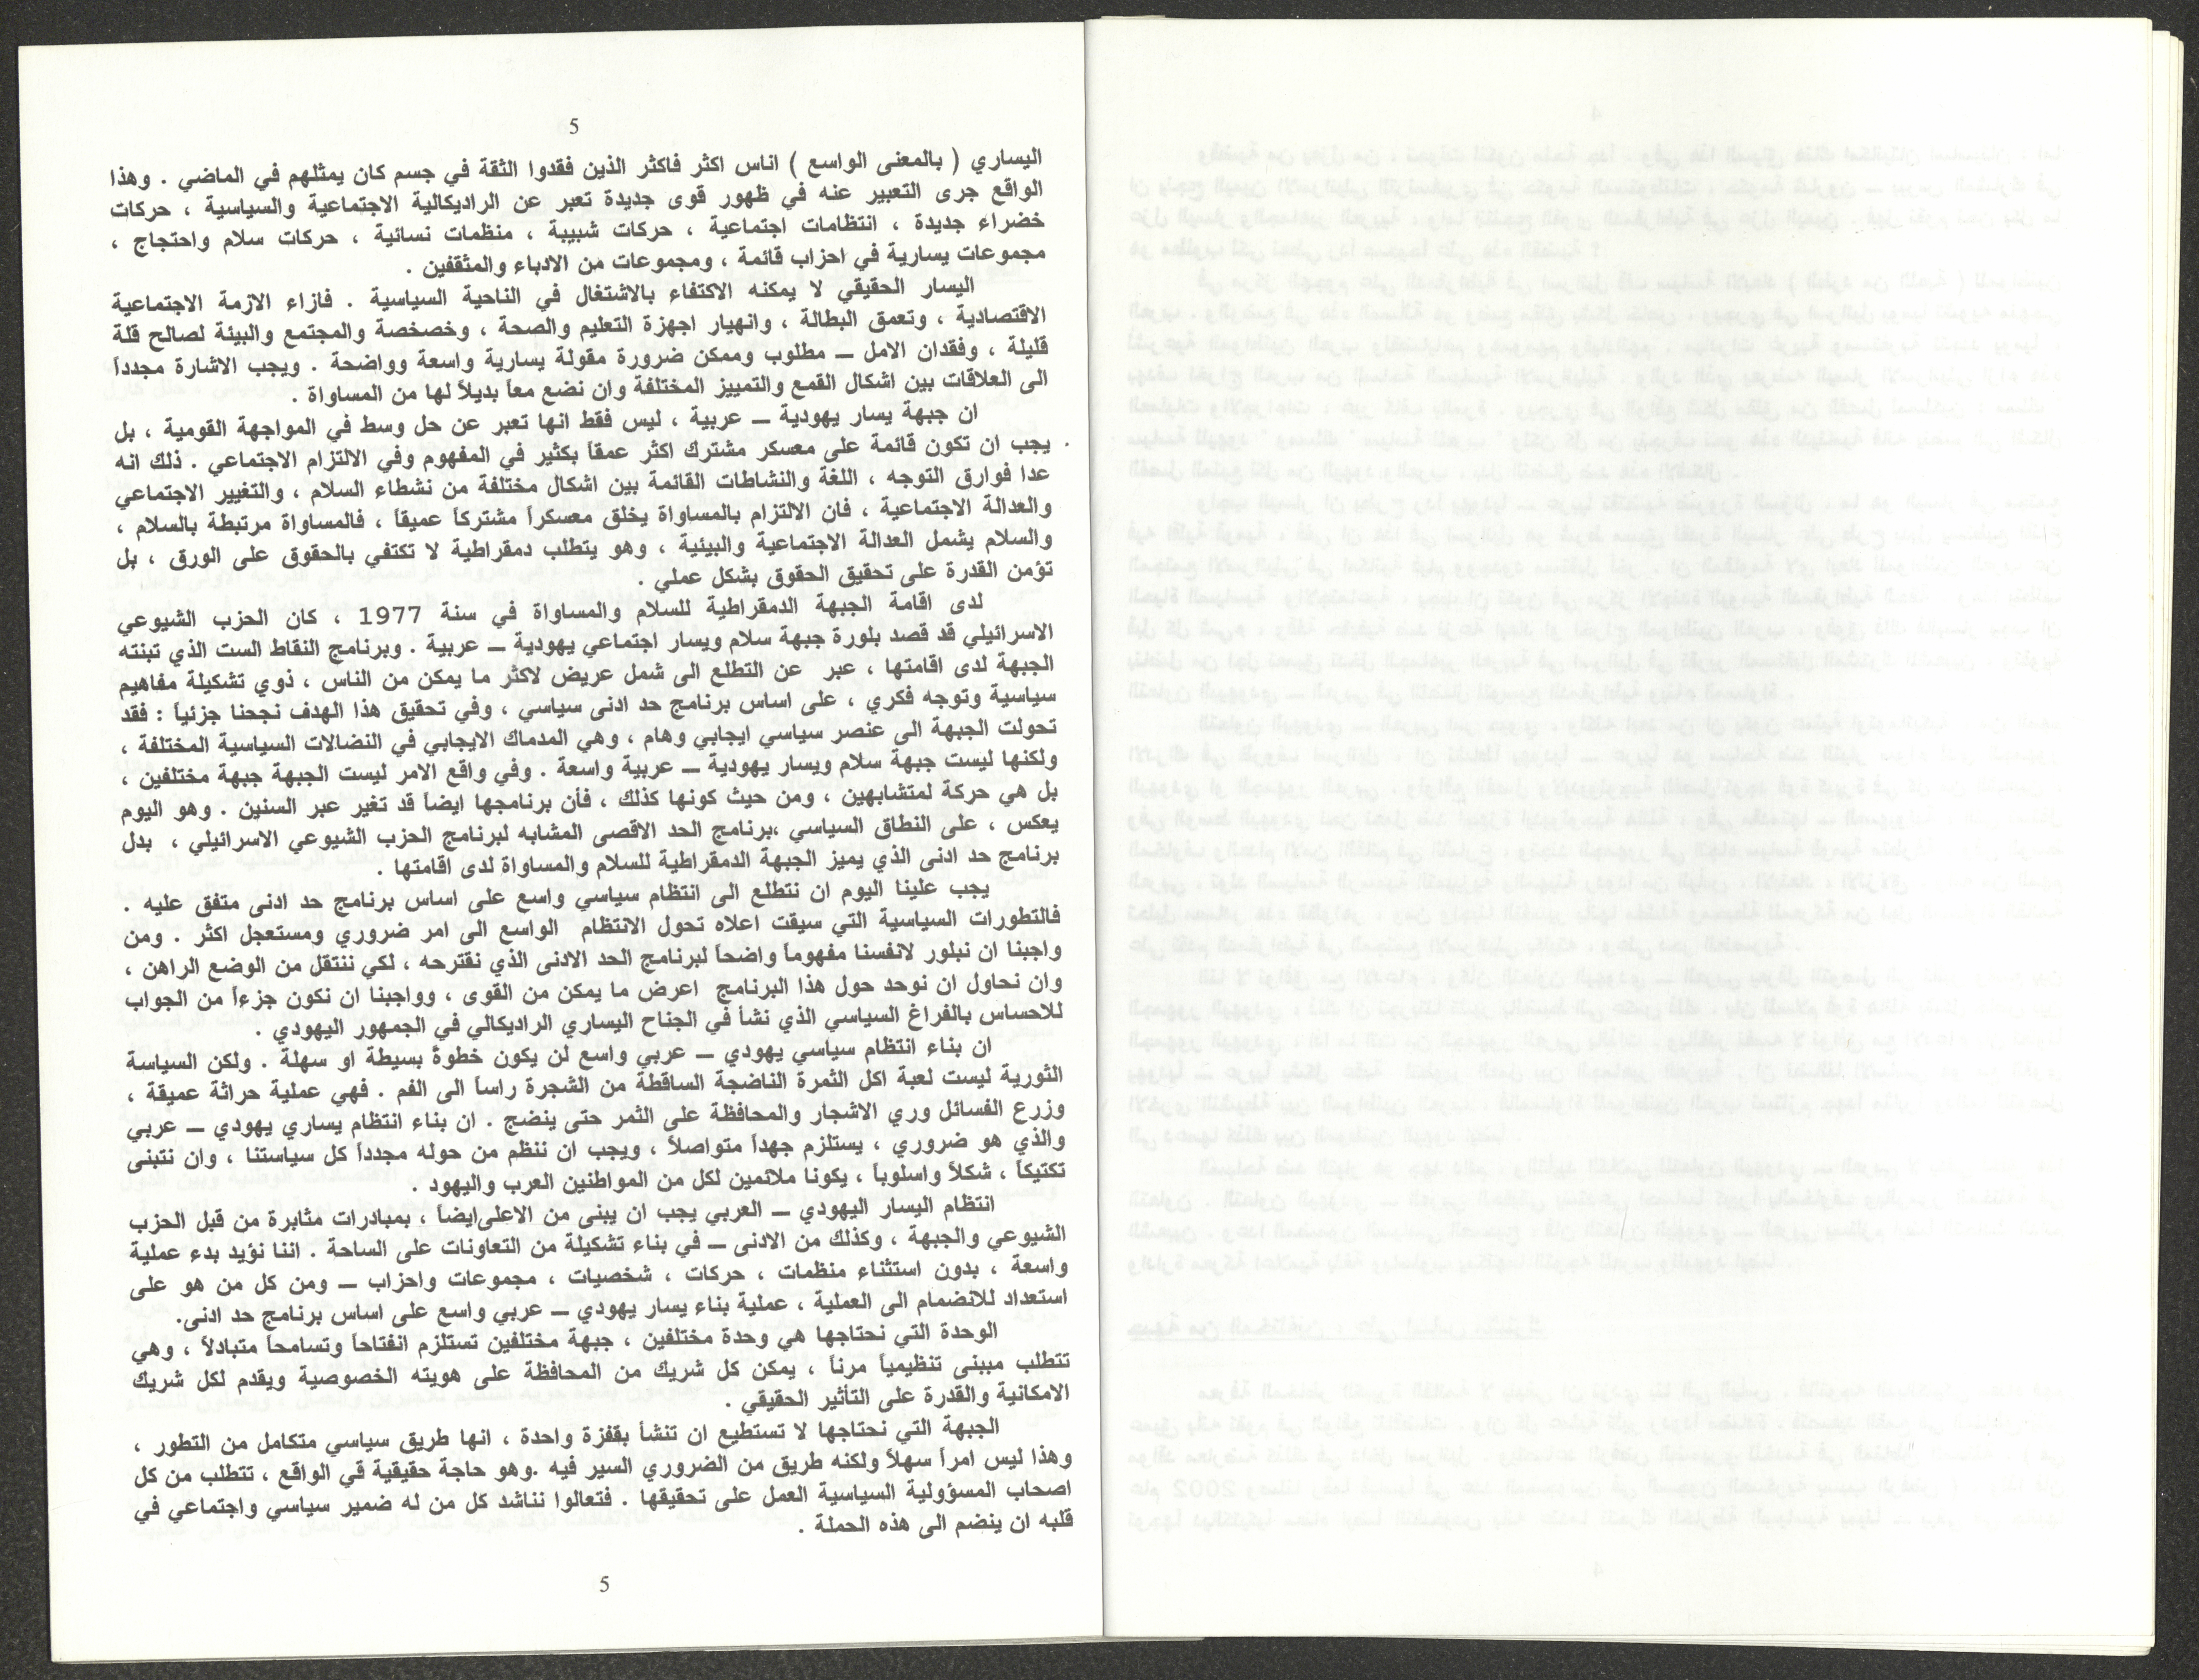 5
اليساري ( بالمعنى الواسع ) اناس اكثر فاكثر الذين فقدوا الثقة في جسم كان يمثلهم في الماضي . وهذا
الواقع جرى التعبير عنه في ظهور قوى جديدة تعبر عن الراديكالية الاجتماعية والسياسية ، حركات
خضراء جديدة ، انتظامات اجتماعية ، حركات شبيبة ، منظمات نسائية ، حركات سلام واحتجاج ،
مجموعات يسارية في احزاب قائمة ، ومجموعات من الادباء والمثقفين .
اليسار الحقيقي لا يمكنه الاكتفاء بالاشتغال في الناحية السياسية . فازاء الازمة الاجتماعية
الاقتصادية ، وتعمق البطالة ، وانهيار اجهزة التعليم والصحة ، وخصخصة والمجتمع والبيئة لصالح قلة
قليلة ، وفقدان الامل ـــ مطلوب وممكن ضرورة مقولة يسارية واسعة وواضحة . ويجب الاشارة مجدداً
الى العلاقات بين اشكال القمع والتمييز المختلفة وان نضع معاً بديلاً لها من المساواة .
ان جبهة يسار يهودية ـــ عربية ، ليس فقط انها تعبر عن حل وسط في المواجهة القومية ، بل
يجب ان تكون قائمة على معسكر مشترك اكثر عمقاً بكثير في المفهوم وفي الالتزام الاجتماعي . ذلك انه
عدا فوارق التوجه ، اللغة والنشاطات القائمة بين اشكال مختلفة من نشطاء السلام ، والتغيير الاجتماعي
والعدالة الاجتماعية ، فان الالتزام بالمساواة يخلق معسكراً مشتركاً عميقاً ، فالمساواة مرتبطة بالسلام ،
والسلام يشمل العدالة الاجتماعية والبيئية ، وهو يتطلب دمقراطية لا تكتفي بالحقوق على الورق ، بل
تؤمن القدرة على تحقيق الحقوق بشكل عملي .
لدى اقامة الجبهة الدمقراطية للسلام والمساواة في سنة 1977 ، كان الحزب الشيوعي
الاسرائيلي قد قصد بلورة جبهة سلام ويسار اجتماعي يهودية ـــ عربية . وبرنامج النقاط الست الذي تبنته
الجبهة لدى اقامتها ، عبر عن التطلع الى شمل عريض لاكثر ما يمكن من الناس ، ذوي تشكيلة مفاهيم
سياسية وتوجه فكري ، على اساس برنامج حد ادنى سياسي ، وفي تحقيق هذا الهدف نجحنا جزئياً : فقد
تحولت الجبهة الى عنصر سياسي ايجابي وهام ، وهي المدماك الايجابي في النضالات السياسية المختلفة ،
ولكنها ليست جبهة سلام ويسار يهودية ـــ عربية واسعة . وفي واقع الامر ليست الجبهة جبهة مختلفين ،
بل هي حركة لمتشابهين ، ومن حيث كونها كذلك ، فأن برنامجها ايضاً قد تغير عبر السنين . وهو اليوم
يعكس ، على النطاق السياسي ،برنامج الحد الاقصى المشابه لبرنامج الحزب الشيوعي الاسرائيلي ، بدل
برنامج حد ادنى الذي يميز الجبهة الدمقراطية للسلام والمساواة لدى اقامتها .
يجب علينا اليوم ان نتطلع الى انتظام سياسي واسع على اساس برنامج حد ادنى متفق عليه .
فالتطورات السياسية التي سيقت اعلاه تحول الانتظام الواسع الى امر ضروري ومستعجل اكثر . ومن
واجبنا ان نبلور لانفسنا مفهوماً واضحاً لبرنامج الحد الادنى الذي نقترحه ، لكي ننتقل من الوضع الراهن ،
وان نحاول ان نوحد حول هذا البرنامج اعرض ما يمكن من القوى ، وواجبنا ان نكون جزءاً من الجواب
للاحساس بالفراغ السياسي الذي نشأ في الجناح اليساري الراديكالي في الجمهور اليهودي .
ان بناء انتظام سياسي يهودي ـــ عربي واسع لن يكون خطوةً بسيطة او سهلة . ولكن السياسة
الثورية ليست لعبة اكل الثمرة الناضجة الساقطة من الشجرة راساً الى الفم . فهي عملية حراثة عميقة ،
وزرع الفسائل وري الاشجار والمحافظة على الثمر حتى ينضج . ان بناء انتظام يساري يهودي ـــ عربي
والذي هو ضروري ، يستلزم جهداً متواصلاً ، ويجب ان ننظم من حوله مجدداً كل سياستنا ، وان نتبنى
تكتيكاً ، شكلاً واسلوباً ، يكونا ملائمين لكل من المواطنين العرب واليهود .
انتظام اليسار اليهودي ـــ العربي يجب ان يبنى من الاعلى‌ايضاً ، بمبادرات مثابرة من قبل الحزب
الشيوعي والجبهة ، وكذلك من الادنى ـــ في بناء تشكيلة من التعاونات على الساحة . اننا نؤيد بدء عملية
واسعة ، بدون استثناء منظمات ، حركات ، شخصيات ، مجموعات واحزاب ـــ ومن كل من هو على
استعداد للانضمام الى العملية ، عملية بناء يسار يهودي ـــ عربي واسع على اساس برنامج حد ادنى.
الوحدة التي نحتاجها هي وحدة مختلفين ، جبهة مختلفين تستلزم انفتاحاً وتسامحاً متبادلاً ، وهي
تتطلب مببنى تنظيمياً مرناً ، يمكن كل شريك من المحافظة على هويته الخصوصية ويقدم لكل شريك
الامكانية والقدرة على التأثير الحقيقي .
الجبهة التي نحتاجها لا تستطيع ان تنشأ بقفزة واحدة ، انها طريق سياسي متكامل من التطور ،
وهذا ليس امراً سهلاً ولكنه طريق من الضروري السير فيه .وهو حاجة حقيقية قي الواقع ، تتطلب من كل
اصحاب المسؤولية السياسية العمل على تحقيقها . فتعالوا نناشد كل من له ضمير سياسي واجتماعي في
قلبه ان ينضم الى هذه الحملة .
5